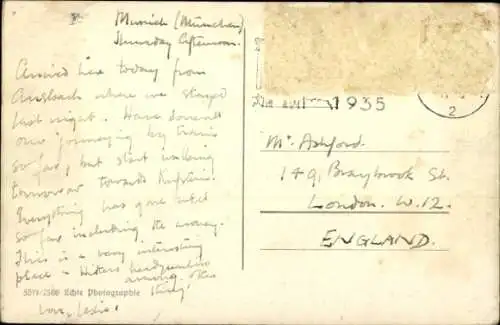 Munich (München)
Thursday Afternoon.
Arrived here today from
Ansbach where we stayed
last night. Have done all
our journeying by train
so far, but start walking
tomorrow towards Kufstein.
Everything has gone well
so far including the money.
This is a very interesting
place - Hitler's headquarters
among other
things.
Love, Leslie.
5519/2506 Echte Photographie
1935
2
Mr Ashford.
149, Braybrook St.
London. W.12.
ENGLAND.